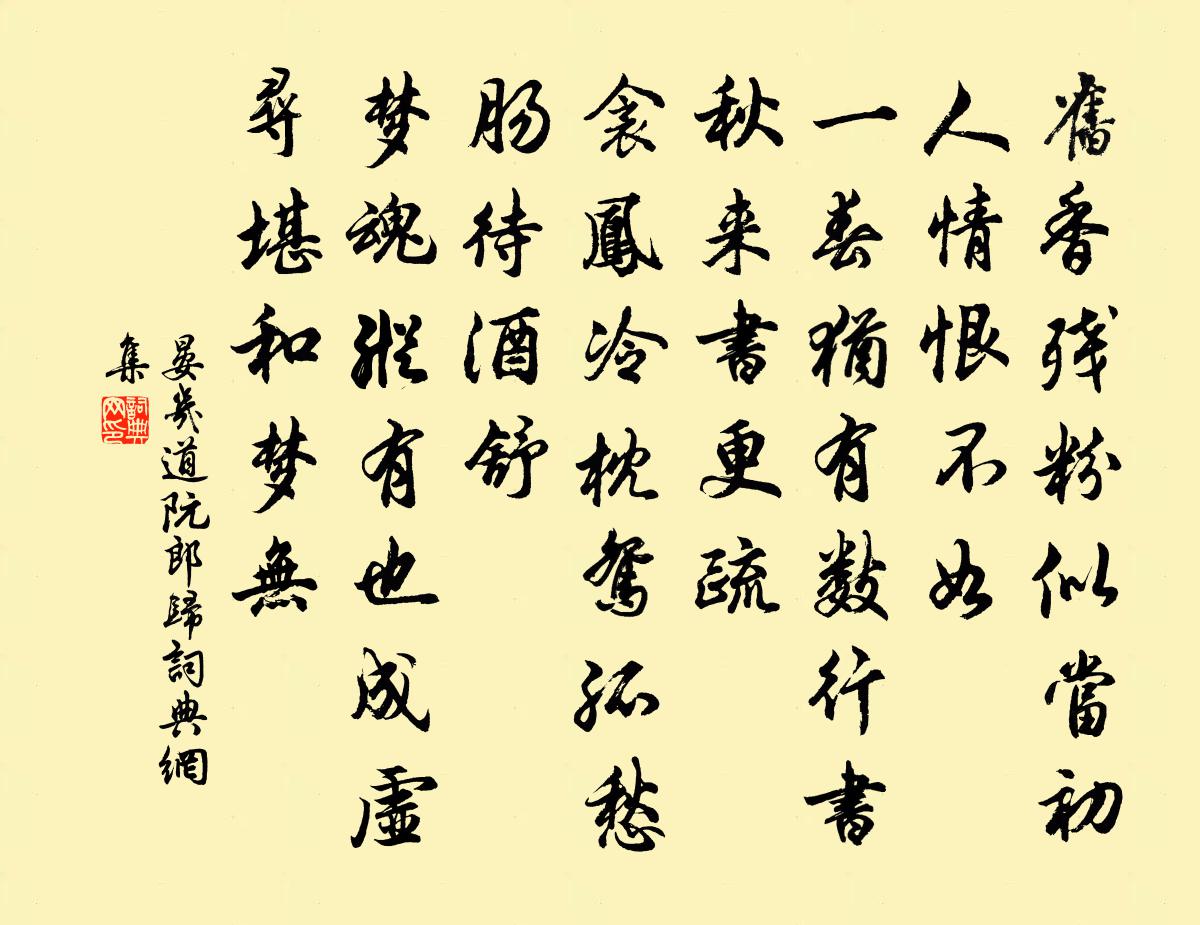 舊香残粉似當初
人情恨不如
一春猶有數行書
秋来書更疏
衾鳳冷枕鴛孤愁
肠待酒舒
梦魂縱有也成虛
尋堪和梦無
晏幾道阮郎歸詞典網
集
詞典網印